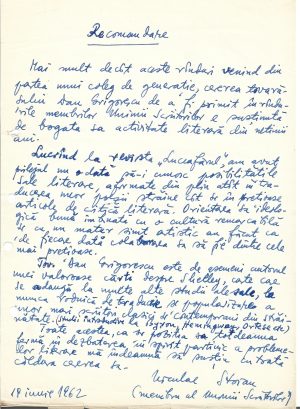 Recomandare
Mai mult decît aceste rînduri venind din
partea unui coleg de generație, cererea tovară-
șului Dan Grigorescu de a fi primit în rîndu-
rile membrilor Uniunii Scriitorilor e susținută
de bogata sa activitate literară din ultimii
ani.
Lucrînd la revista „Luceafărul" am avut
prilejul nu o dată să-i cunosc posibilitățile
sale literare, afirmate din plin atît în tra-
ducerea unor poezii străine cît și în prețioase
articole de critică literară. Orientarea sa ideolo-
gică bună îmbinată cu o cultură remarcabilă
și cu un matur simț artistic au făcut ca
de fiecare dată colaborarea sa să fie dintre cele
mai prețioase.
Tov. Dan Grigorescu este de asemeni autorul
unei valoroase cărți despre Shelley, carte care
se adaugă la multe alte studii ale sale, la
munca rodnică de traducere și popularizare a
unor mari scriitori clasici și contemporani din străi-
nătate. (Studii introductive la Byron, Hemingway,
Toate acestea, ca și poziția sa totdeauna
fermă în dezbaterea, în spirit partinic a probleme-
lor literare mă îndeamnă să susțin cu toată
căldura cererea sa.
Niculae Stoian
19 iunie 1962 (membru al Uniunii Scriitorilor)